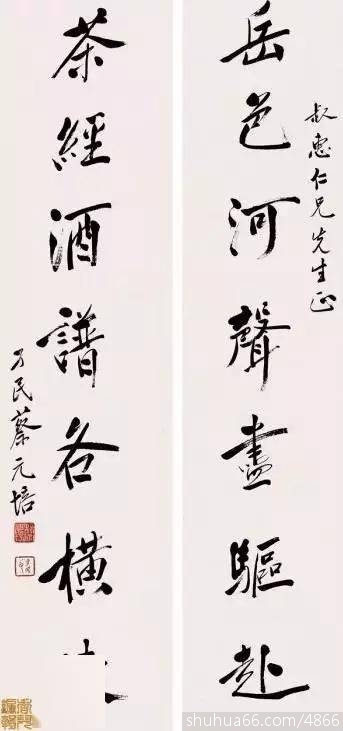 叔惠仁兄先生正
岳色河聲盡驅赴
茶經酒譜各橫
孑民蔡元培
shuhua66.com/4866